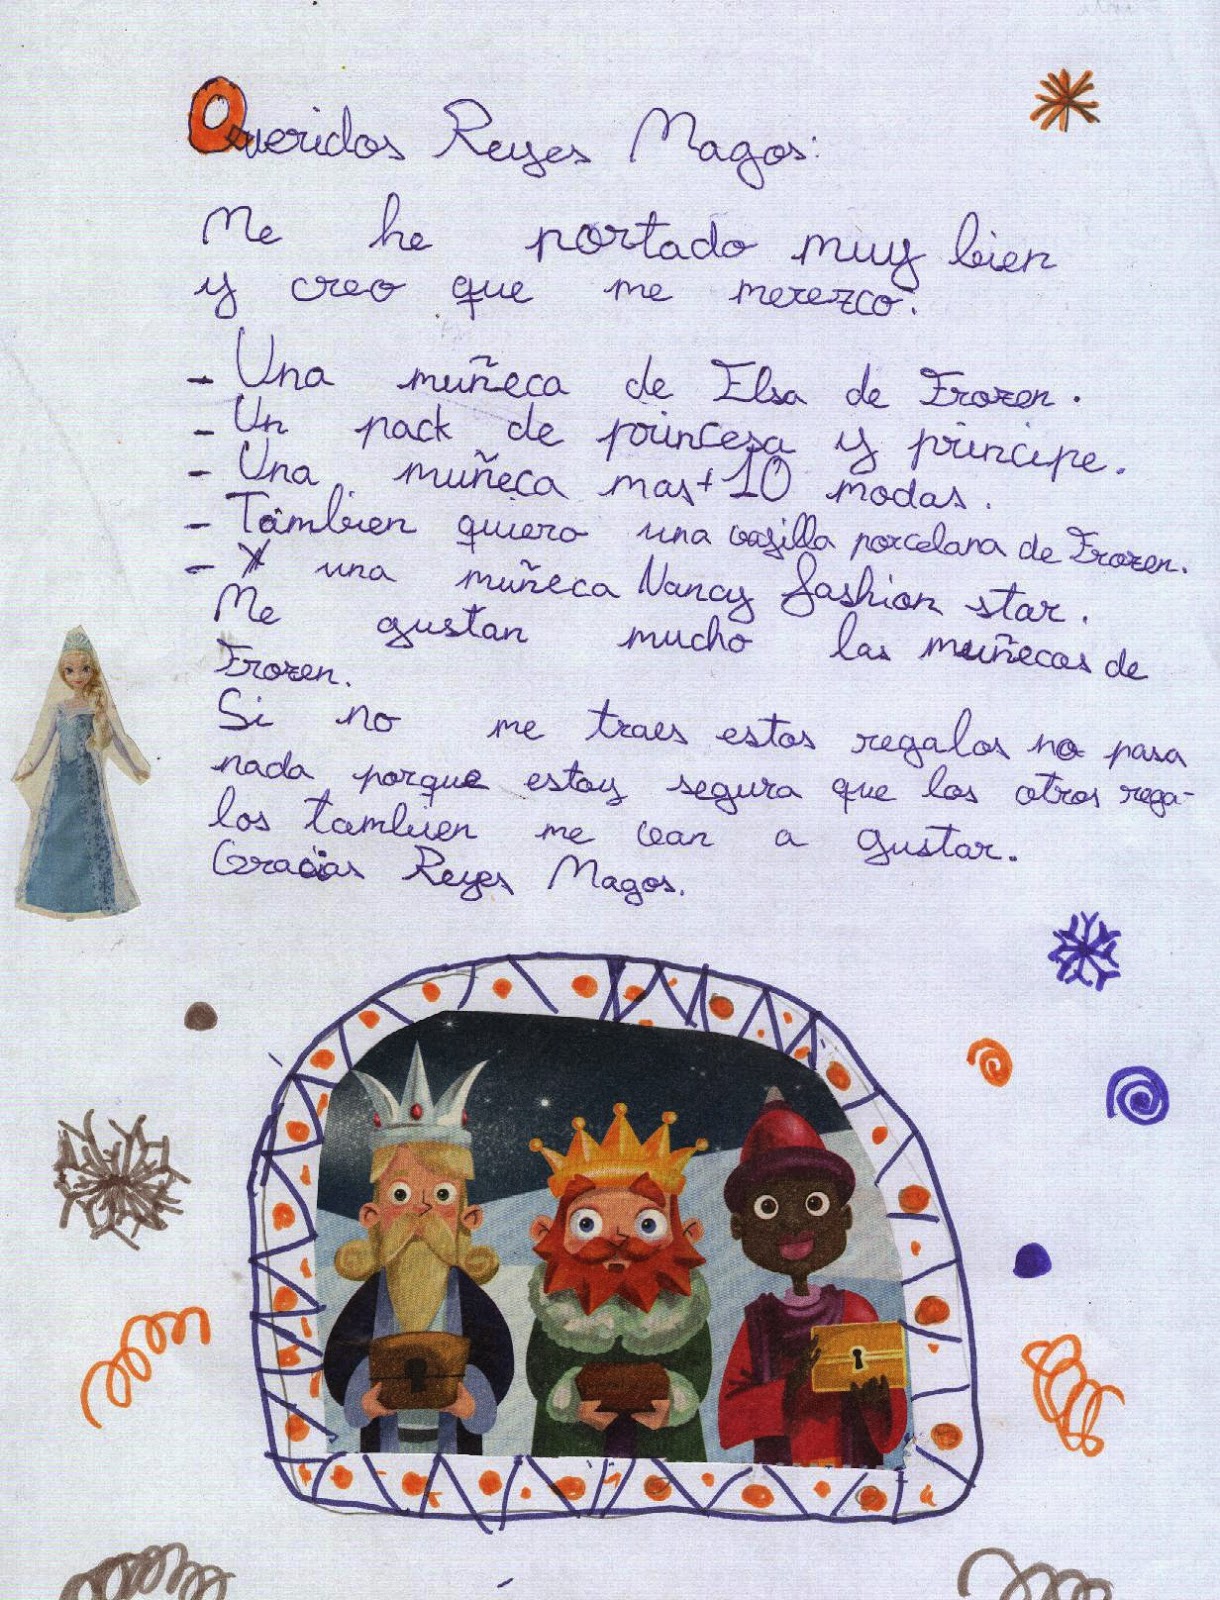 Queridos Reyes Magos:
Me he portado muy bien
y creo que me merezco:
- Una muñeca de Elsa de Frozen.
- Un pack de princesa y principe.
- Una muñeca mas+10 modas.
- Tambien quiero una vagilla porcelana de Frozen.
- Y una muñeca Nancy fashion star.
Me gustan mucho las muñecas de
Frozen.
Si no me traes estos regalos no pasa
nada porque estoy segura que los otros rega-
los tambien me van a gustar.
Gracias Reyes Magos.